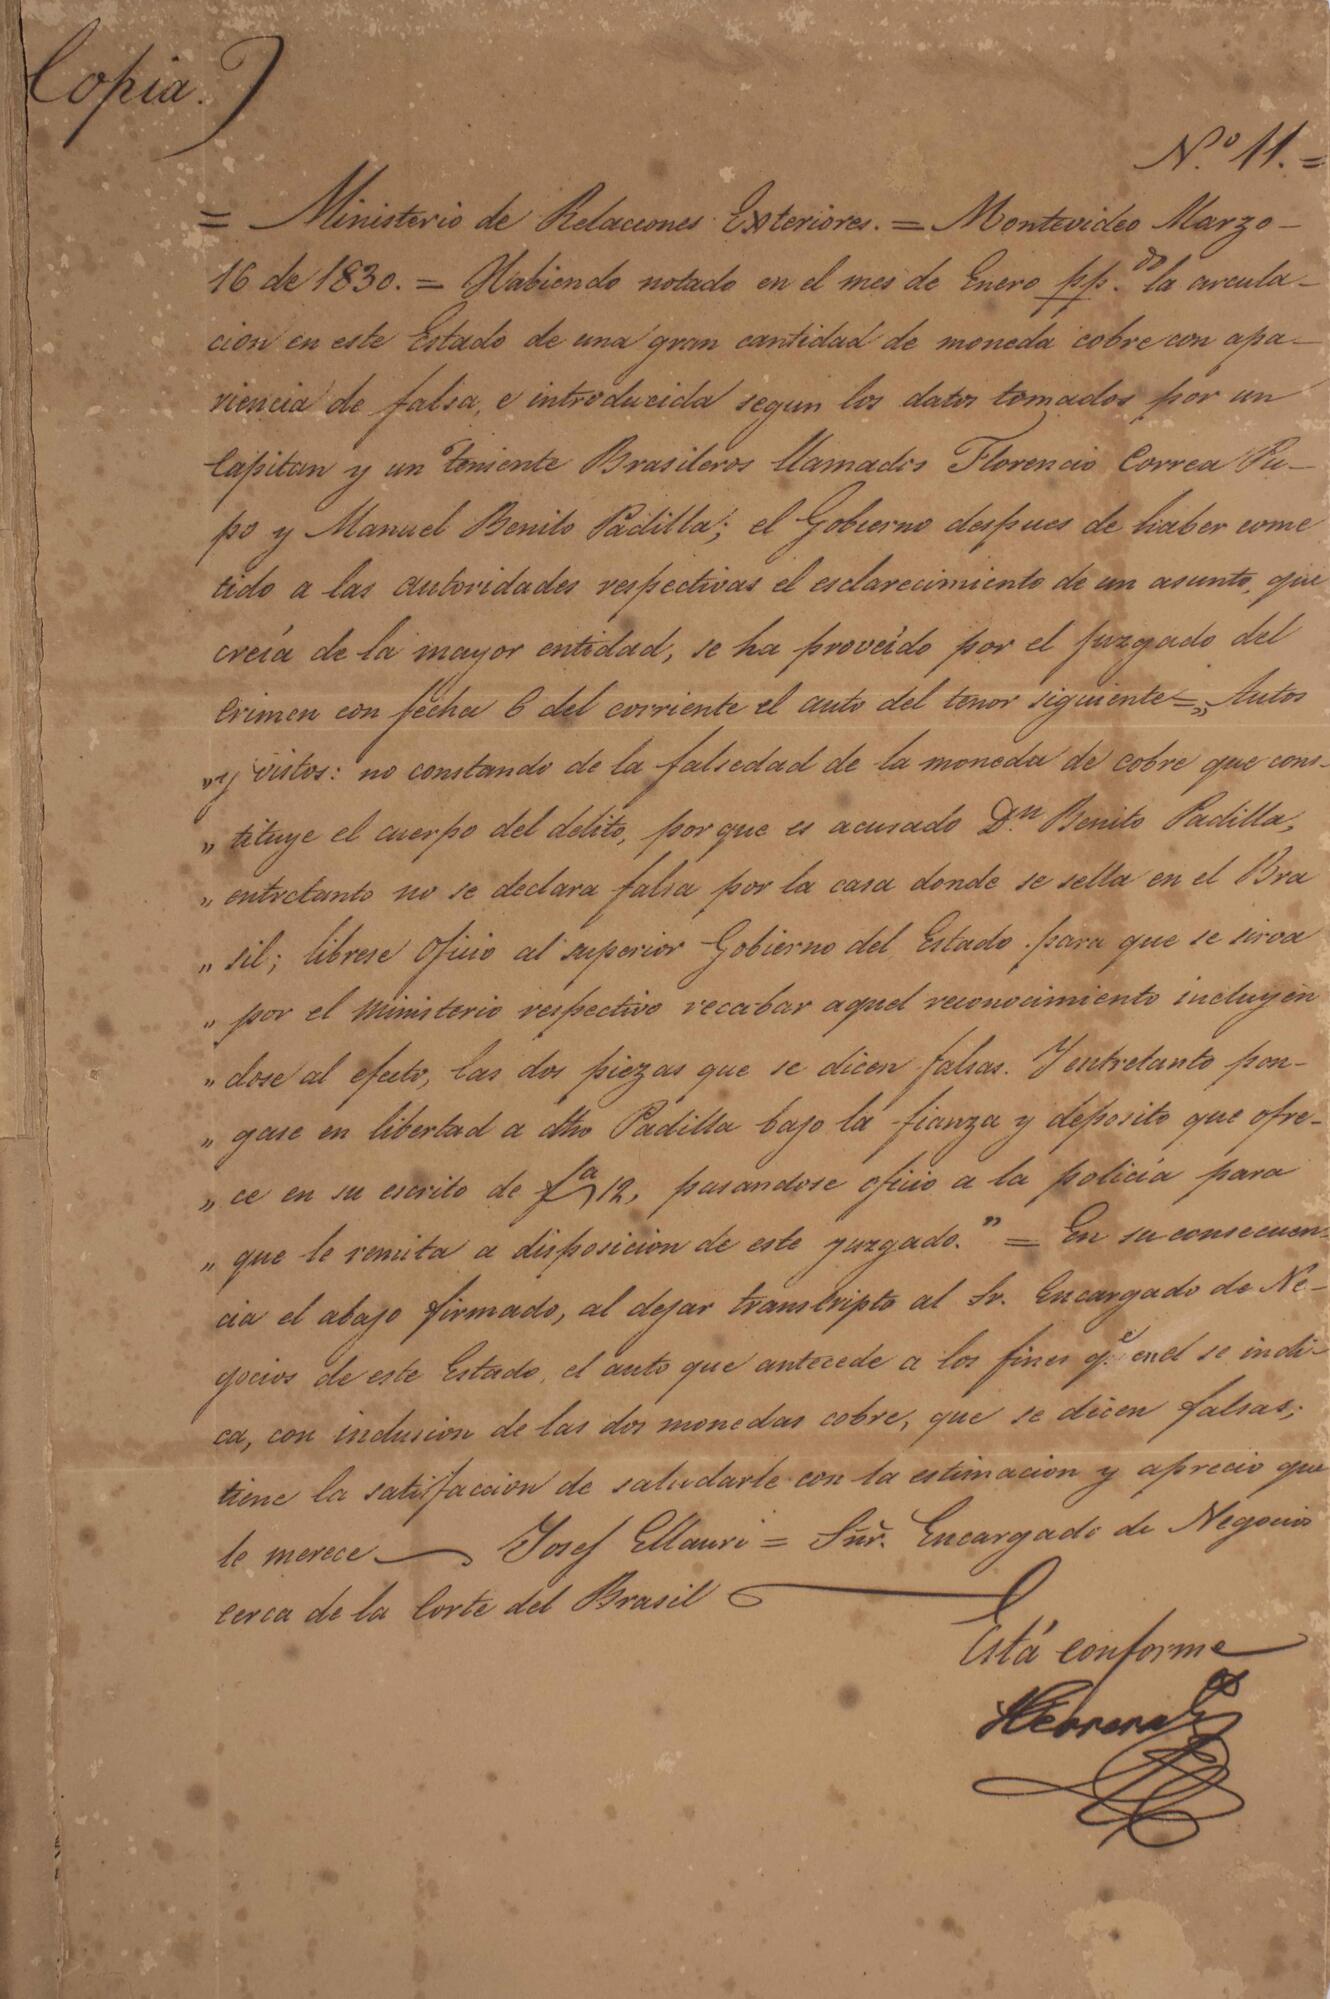 Copia.)
N.º 11. =
= Ministerio de Relaciones Exteriores. = Montevideo Marzo
16 de 1830. = Habiendo notado en el mes de Enero pp.do la circula-
cion en este Estado de una gran cantidad de moneda cobre con apa-
riencia de falsa, e introducida segun los datos tomados por un
Capitan y un Teniente Brasileros llamados Florencio Correa Pu-
po y Manuel Benito Padilla; el Gobierno despues de haber come
tido a las autoridades respectivas el esclarecimiento de un asunto, que
creía de la mayor entidad, se ha proveído por el juzgado del
Crimen con fecha 6 del corriente el auto del tenor siguiente = „ Autos
„ y vistos: no constando de la falsedad de la moneda de cobre que cons-
„ tituye el cuerpo del delito, por que es acusado D.n Benito Padilla,
„ entretanto no se declara falsa por la casa donde se sella en el Bra
„ sil; librese oficio al superior Gobierno del Estado para que se sirva
„ por el ministerio respectivo recabar aquel reconocimiento incluyen
„ dose al efecto, las dos piezas que se dicen falsas. Y entretanto pon-
„ gase en libertad a dho Padilla bajo la fianza y deposito que ofre-
„ ce en su escrito de fa 12, pasandose oficio a la policía para
„ que le remita a disposicion de este yuzgado." = En su consecuen-
cia el abajo firmado, al dejar transcripto al Sr. Encargado de Ne-
gocios de este Estado, el auto que antecede a los fines q.e en el se indi-
ca, con inclusion de las dos monedas cobre, que se dicen falsas;
tiene la satisfaccion de saludarle con la estimacion y aprecio que
le merece — Josef Ellauri = Sñr. Encargado de Negocios
cerca de la Corte del Brasil
Está conforme
Herrera